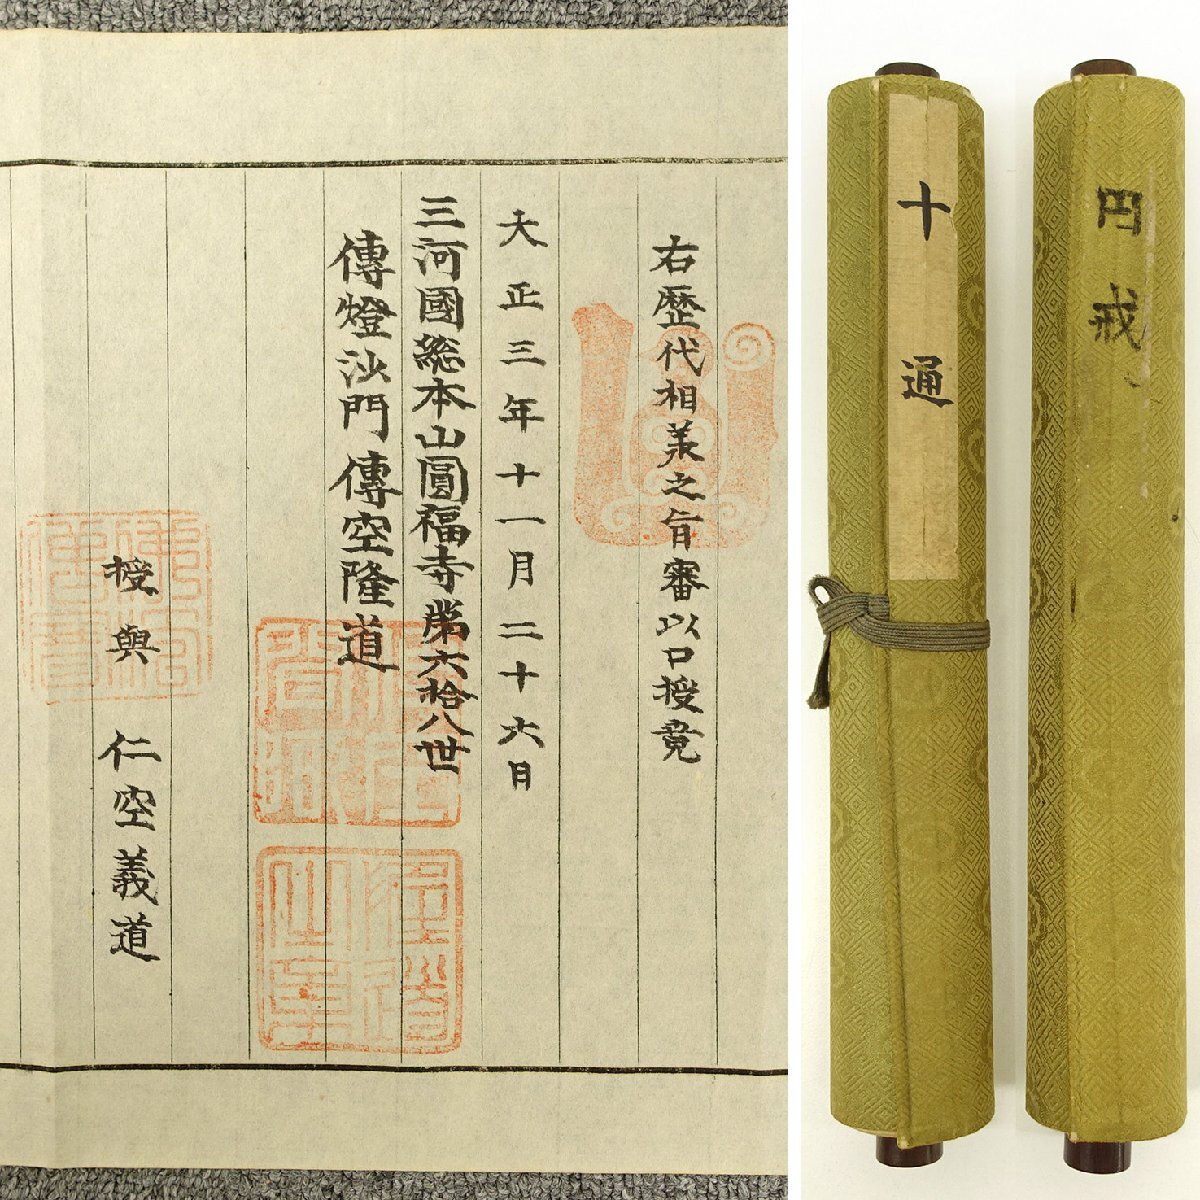 右歴代相羕之旨審以口授竟
大正三年十一月二十六日
三河國総本山圓福寺第六拾八世
傳燈沙門傳空隆道
授與　仁空義道
十通
円戒